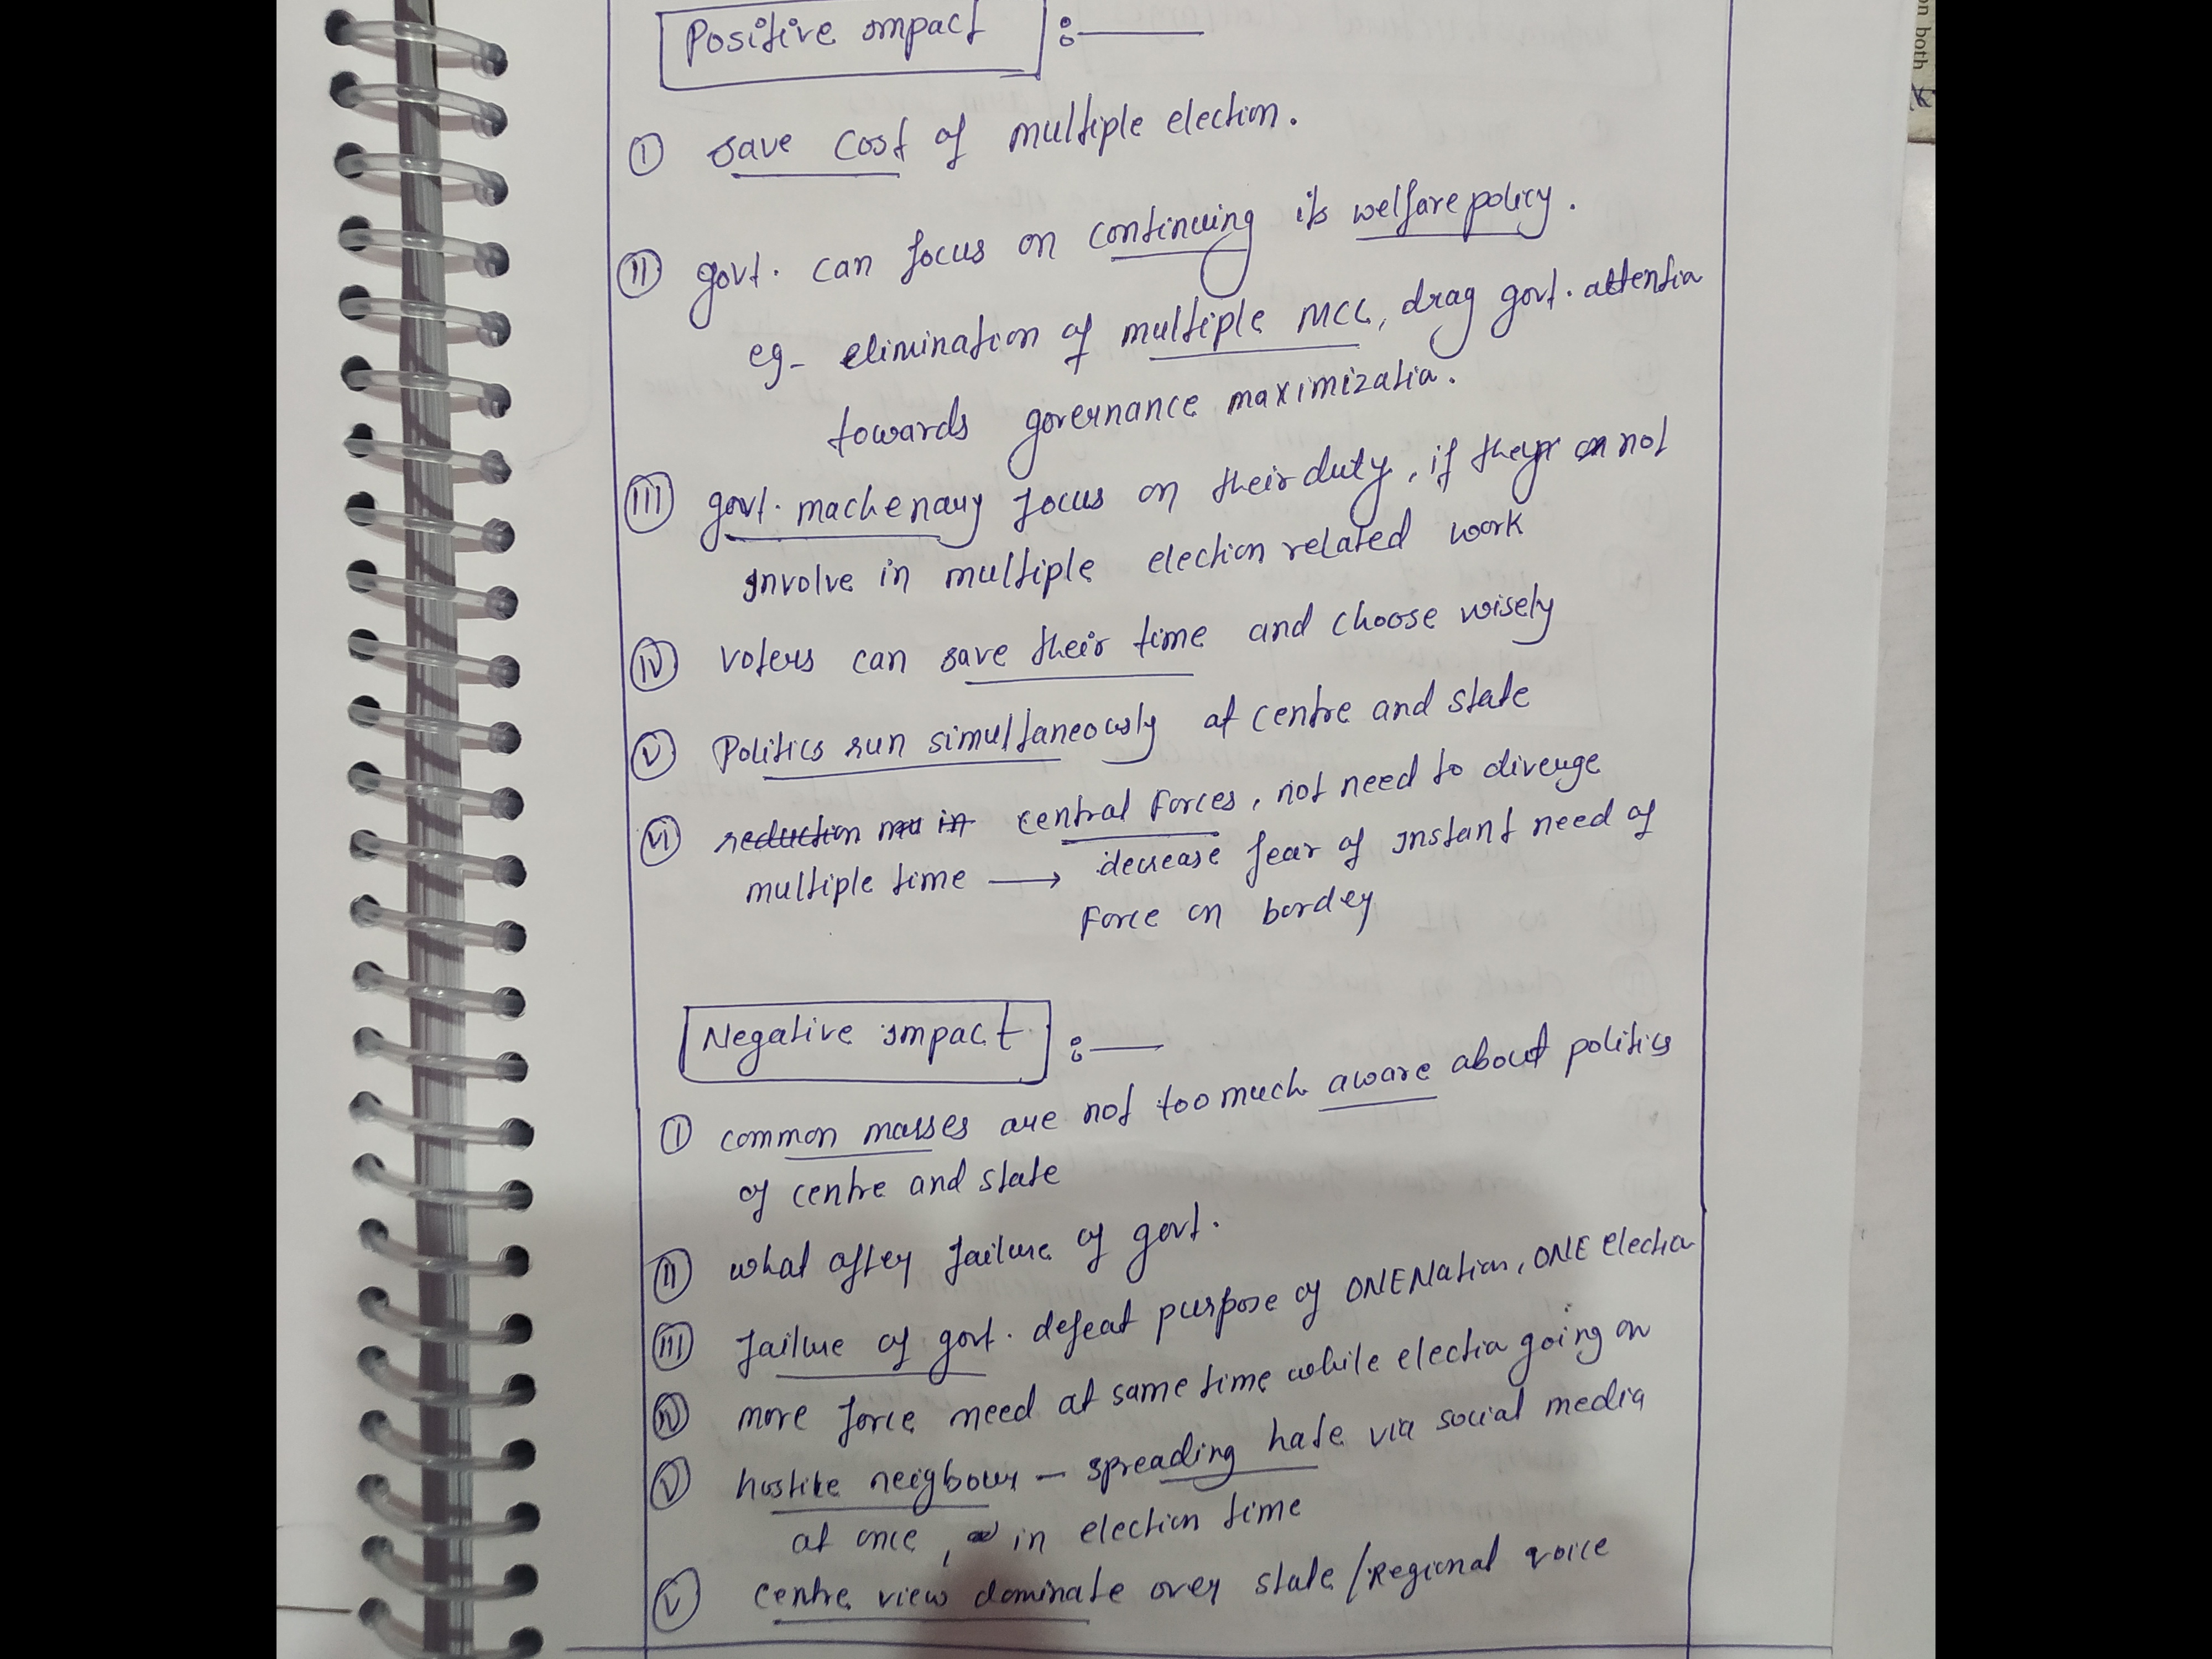 Positive impact :-
(I) save cost of multiple election.
(II) govt. can focus on continuing its welfare policy.
eg- elimination of multiple MCC, drag govt. attention
towards governance maximization.
(III) govt. machenary focus on their duty, if they not
involve in multiple election related work
(IV) voters can save their time and choose wisely
(V) Politics run simultaneously at centre and state
(VI) reduction in central Forces, not need to diverge
multiple time → decrease fear of instant need of
Force on border
Negative impact :-
(I) common masses are not too much aware about politics
of centre and state
(II) what after failure of govt.
(III) failure of govt. defeat purpose of ONE Nation, ONE election
(IV) more force need at same time while election going on
(V) hostile neigbour - spreading hate via social media
at once, in election time
(V) centre view dominate over state/Regional voice
on both